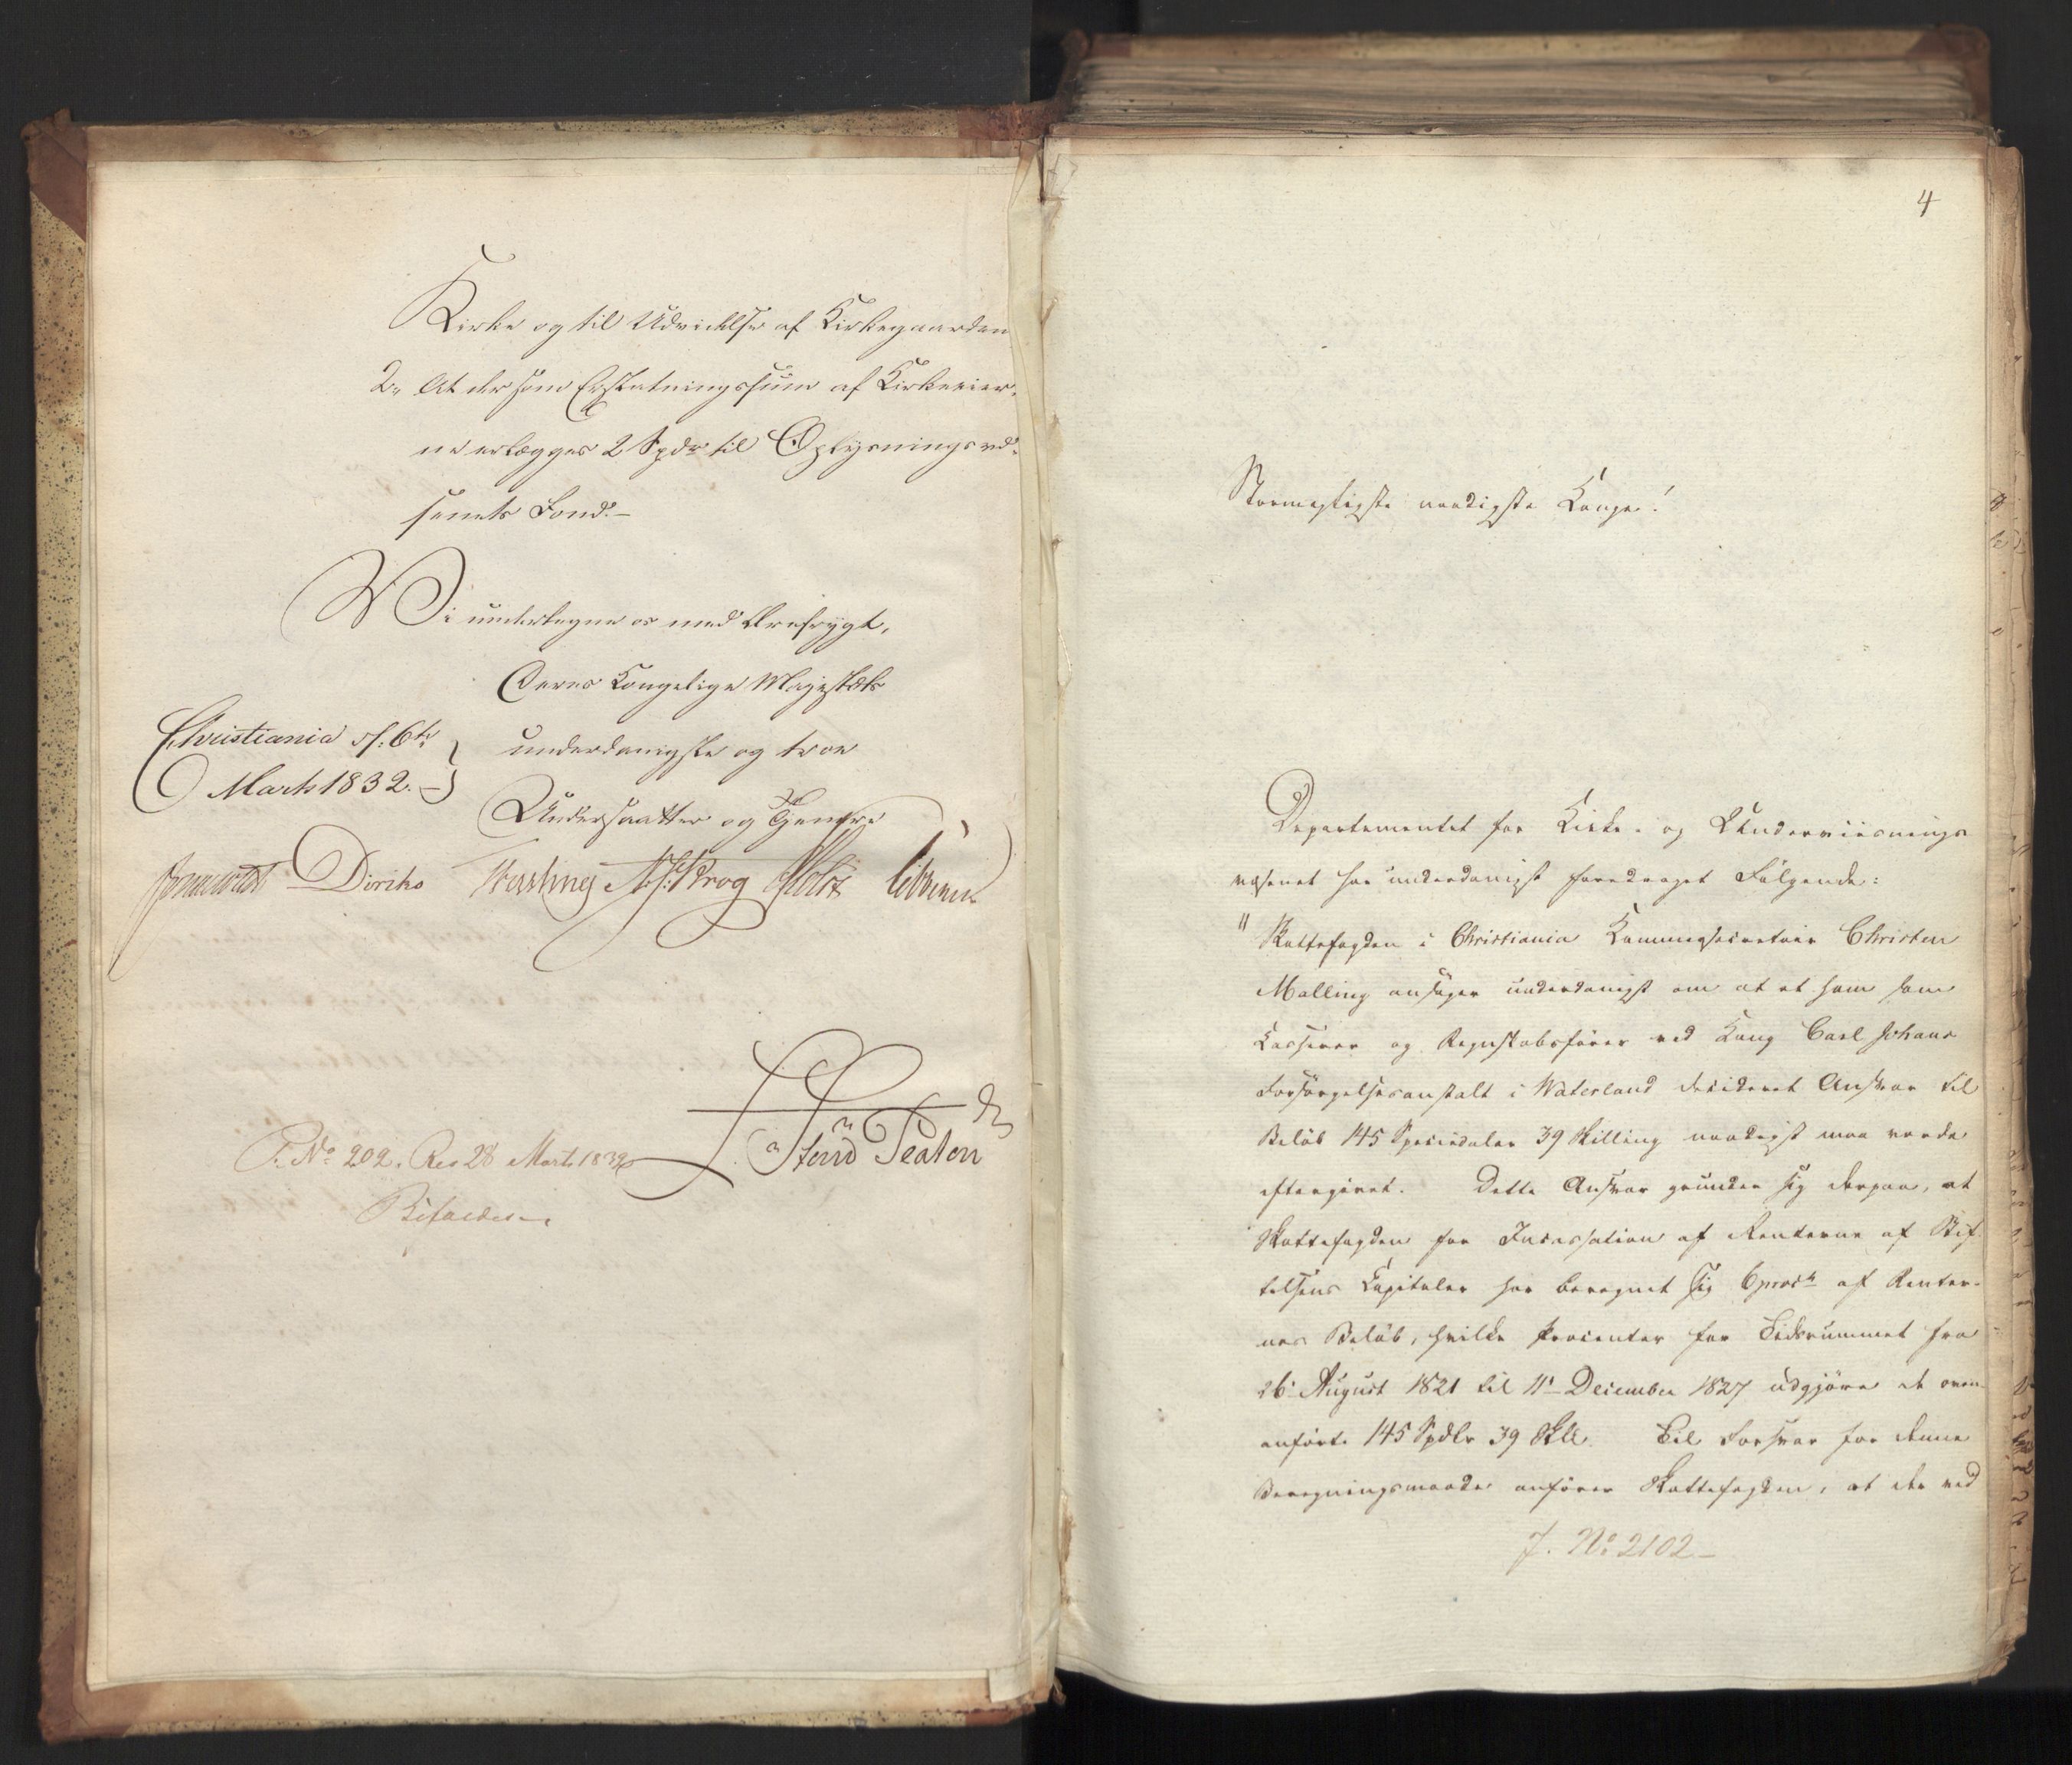 Kirke og til Udvidelse af Kirkegaarden
2, At der som Erstatningssum af Kirkeeier-
ne erlægges 2 Spdr til Oplysningsvæ-
senets Fond.-
Vi undertegne os med Ærefrygt,
Deres Kongelige Majestæts
Christiania d: 6te
Marts 1832.-
underdanigste og troe
Undersaatter og Tjenere
Diriks N. J: Krog Holst
P. No 202. Res 28 Marts 1832
Bifaldes
4
Stormægtigste naadigste Konge!
Departementet for Kirke- og Underviisnings-
væsenet har underdanigst foredraget Følgende:
" Skattefogden i Christiania Kammersecretair Christen
Malling ansøger underdanigst om at et ham som
Kasserer og Regnskabsfører ved Kong Carl Johans
Forsørgelsesanstalt i Waterland decideret Ansvar til
Beløb 145 Speciedaler 39 Skilling naadigst maa vorde
eftergivet. Dette Ansvar grunder sig derpaa, at
Skattefogden for Incassation af Renterne af Stif-
telsens Capitaler har beregnet sig 6 proct af Renter-
nes Beløb, hvilke Procenter for Tidsrummet fra
26 August 1821 til 11 December 1827 udgjøre de oven-
anførte 145 Spdlr 39 Skll. Til Forsvar for denne
Beregningsmaade anfører Skattefogden, at der ved
J. No 2102-